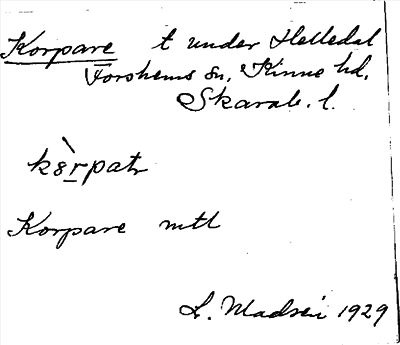 Korpare t under Helledal
Forshems sn, Kinne hd.
Skarab. l.
Korpare mtl
L. Madsén 1929